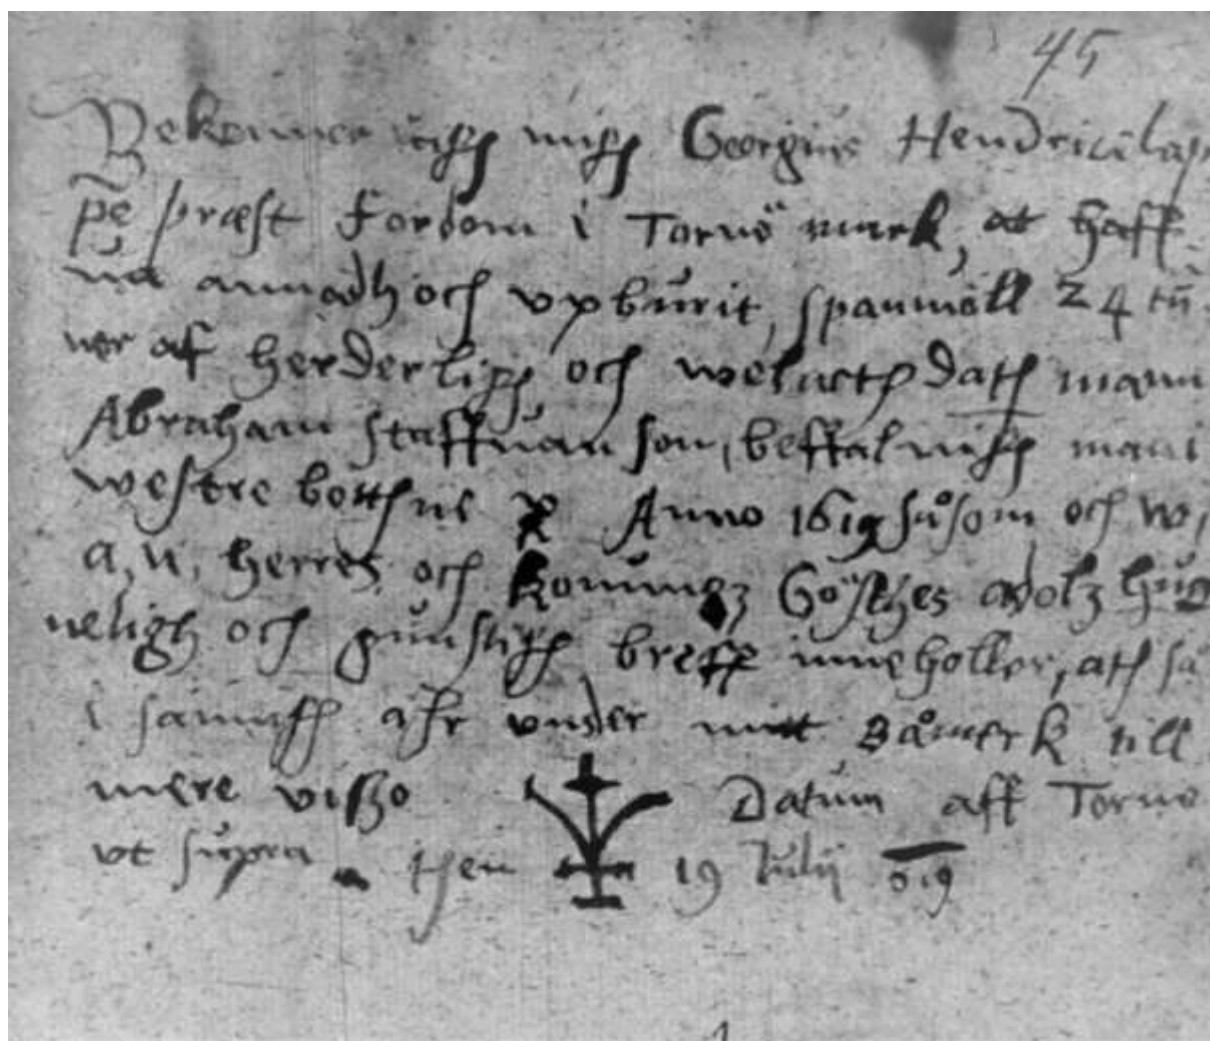 45
Bekenner iagh migh Georgius Hendrici lap
pe præst fordom i Torne mark, at haff
ua annadh och vpburit, spanmåll 24 tun
ner af herderligh och welacth dath mann
Abraham staffuan son, befhal man i
westre botthne Anno 1619 såsom och
a, n, herres och konungz Gösthes adolz
neligh och gunstigh breff inneholler, ath så
i sammeh ahr vnder mitt Båmerk till
mere visho Datum aff Torne
vt supra then 19 Iulij 019